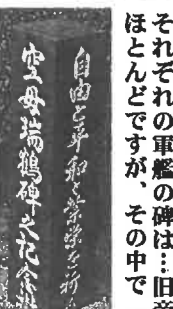 それぞれの軍艦の碑は…旧
ほとんどですが、その中で
自由と平和と栄栄を祈り
空母瑞鶴碑之記念